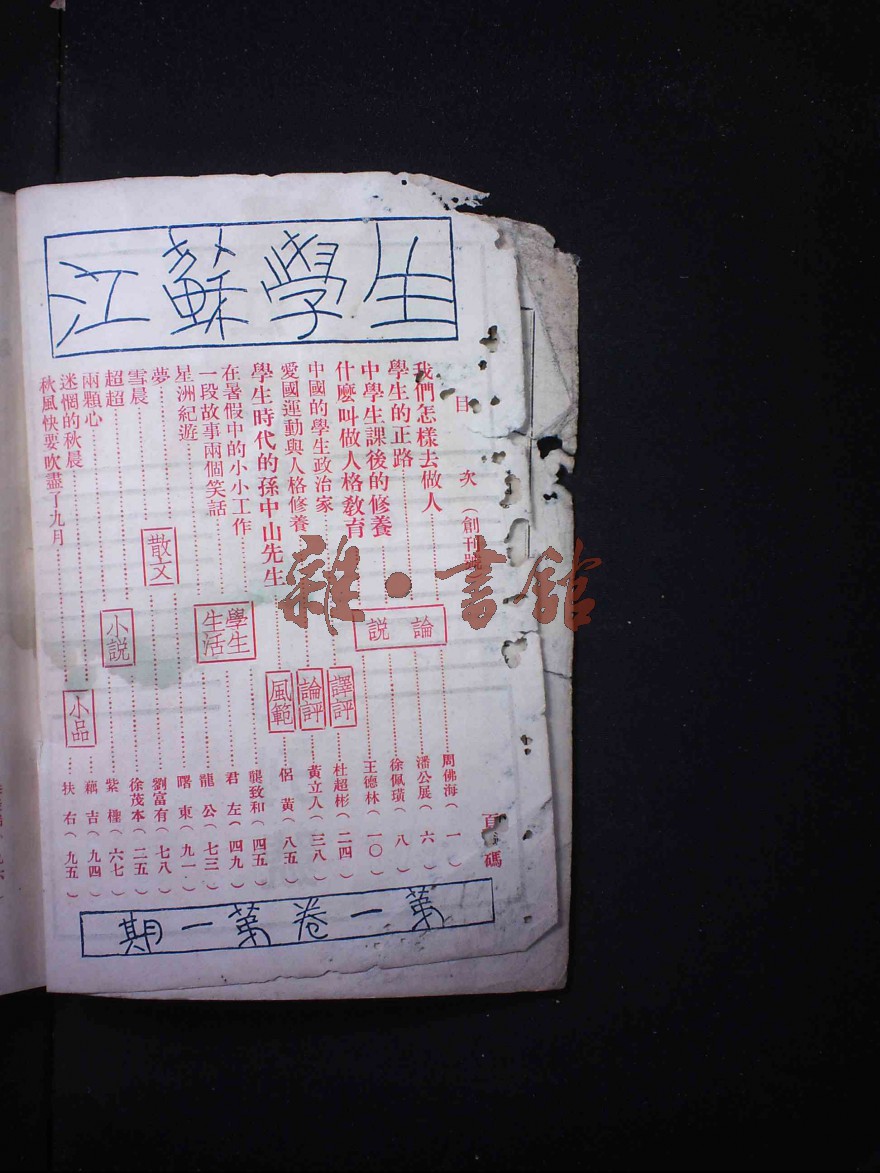 江蘇學生
目次（創刊號） 頁碼
我們怎樣去做人 周佛海（一）
學生的正路 潘公展（六）
論說
中學生課後的修養 徐佩璜（八）
什麼叫做人格教育 王德林（一〇）
中國的學生政治家 譯評 杜超彬（二四）
愛國運動與人格修養 論評 黃立人（三八）
學生時代的孫中山先生 風範 侶黃（八五）
在暑假中的小小工作 龔致和（四五）
學生生活
一段故事兩個笑話 君左（四九）
星洲紀遊 龍公（七三）
夢 散文 曙東（九一）
雪晨 劉富有（七八）
超超 小說 徐茂本（二五）
兩顆心 紫槿（六七）
迷惘的秋晨 小品 藕吉（九四）
秋風快要吹盡了九月 扶右（九五）
第一卷第一期
雜·書館